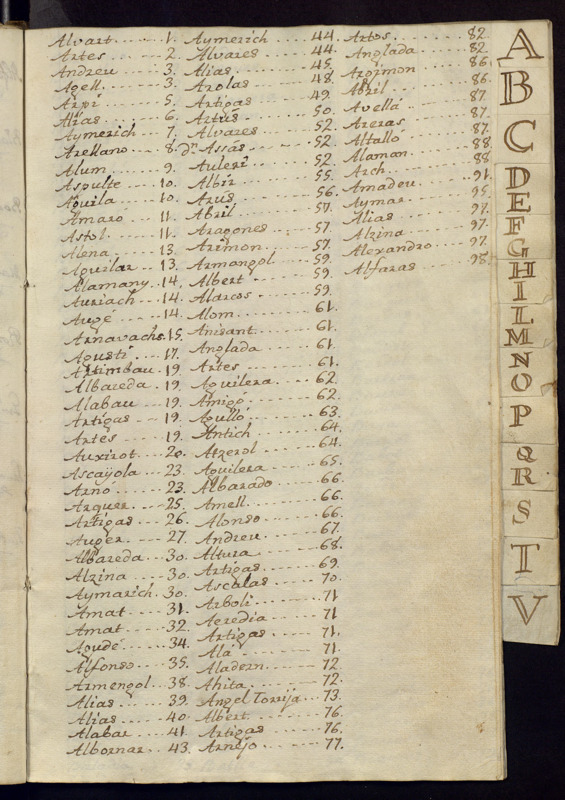 Alvart 1.
Artes 2.
Andreu 3.
Agell 3.
Arpi 5.
Alias 6.
Aymerich 7.
Arellano 8.
Alum 9.
Aspulte 10.
Aguila 10.
Amaro 11.
Astol 11.
Alena 13.
Aguilar 13.
Alamany 14.
Auriach 14.
Augé 14.
Arnavachs 15.
Agusti 17.
Artimbau 19.
Albareda 19.
Alabau 19.
Artigas 19.
Artés 19.
Auxirot 20.
Ascayola 23.
Arno 23.
Arquer 25.
Artigas 26.
Auger 27.
Albareda 30.
Alzina 30.
Aymarich 30.
Amat 31.
Amat 32.
Agudé 34.
Alfonso 35.
Armengol 38.
Alias 39.
Alias 40.
Alabar 41.
Albornar 43.
Aymerich 44.
Alvares 44.
Alias 45.
Arolas 48.
Artigas 49.
Artús 50.
Alvares 52.
de Assas 52.
Auleri 52.
Albir 55.
Arus 56.
Abril 57.
Aragones 57.
Arimon 57.
Armangol 59.
Albert 59.
Aldrcos 59.
Alom 61.
Anisant 61.
Anglada 61.
Artes 61.
Aguilera 62.
Amigó 62.
Agulló 63.
Antich 64.
Atzerol 64.
Aguilera 65.
Albarado 66.
Amell 66.
Alonso 66.
Andreu 67.
Altura 68.
Artigas 69.
Ascalas 70.
Arboli 71
Aeredia 71
Artigas 71.
Alá 71.
Aladern 72
Ahita 72.
Angel Torrija 73.
Albert 76.
Artigas 76.
Arnejo 77.
Artos 82.
Anglada 82.
Arojmon 86.
Abril 86.
Avellá 87.
Areras 87.
Altalló 87.
Alaman 88.
Arch 88
Amadeu 91.
Aymar 95.
Alias 97.
Alzina 97.
Alexandro 97.
Alfaras 98.
A
B
C
D
E
F
G
H
I
L
M
N
O
P
Q
R
S
T
V